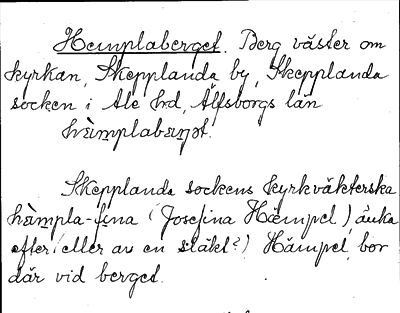 Hemplaberget. Berg väster om
kyrkan, Skepplanda by, Skepplanda
socken i Ale hrd, Älfsborgs län
Skepplanda sockens kyrkväkterska
hàmpla-fina (Josefina Hämpel) änka
efter (eller av en släkt?) Hämpel, bor
där vid berget.